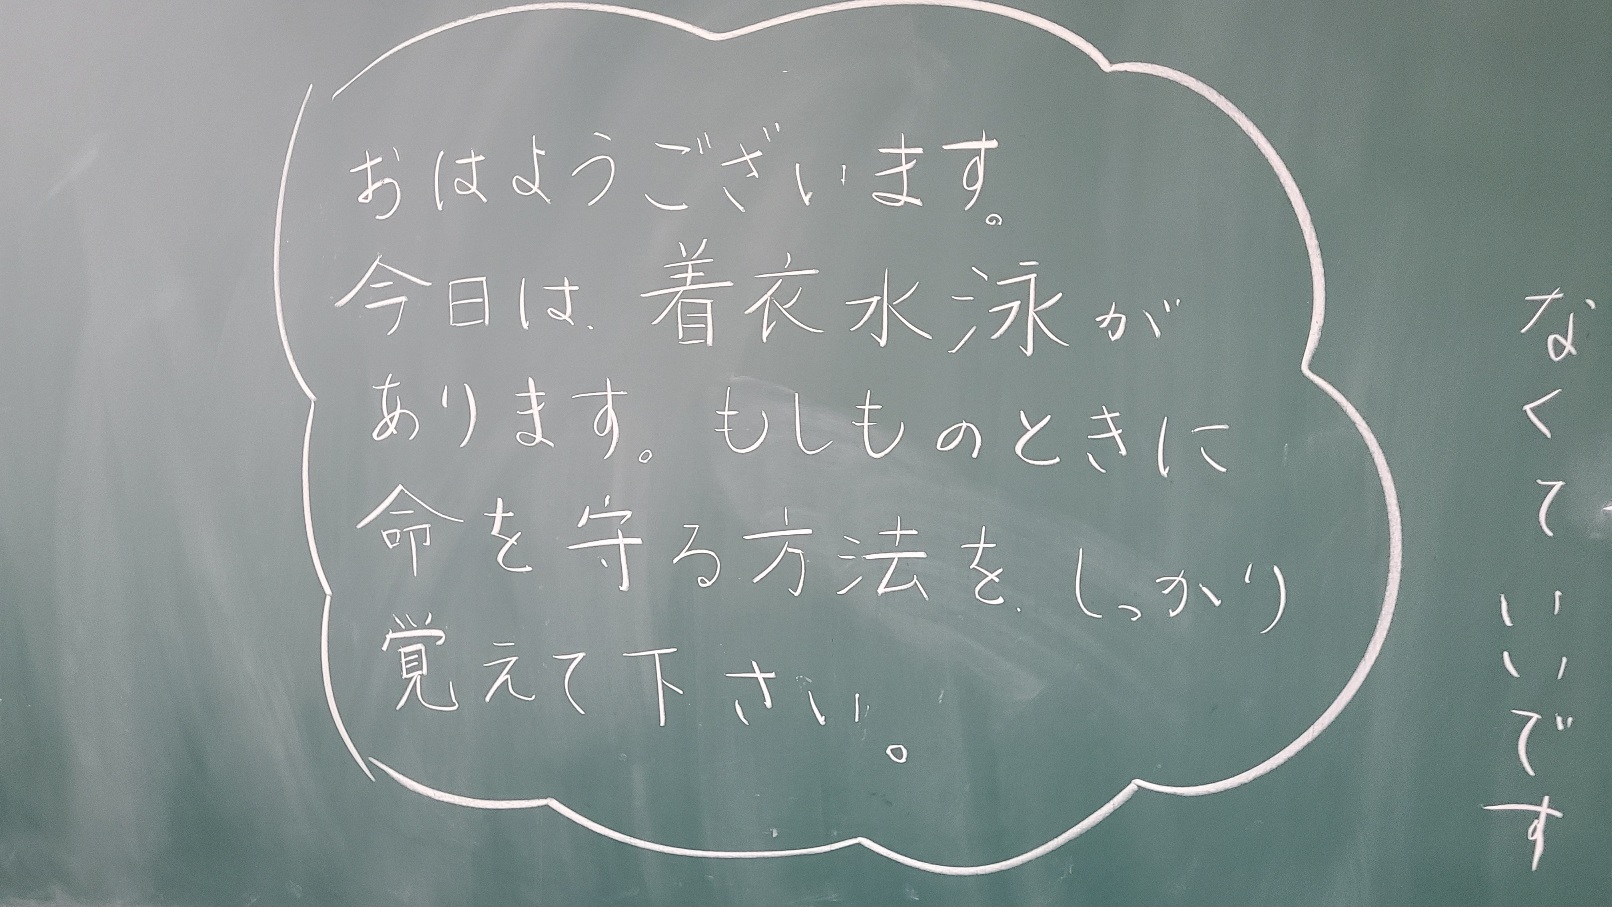 おはようございます。
今日は、着衣水泳が
あります。もしものときに
命を守る方法を、しっかり
覚えて下さい。
なくていいです